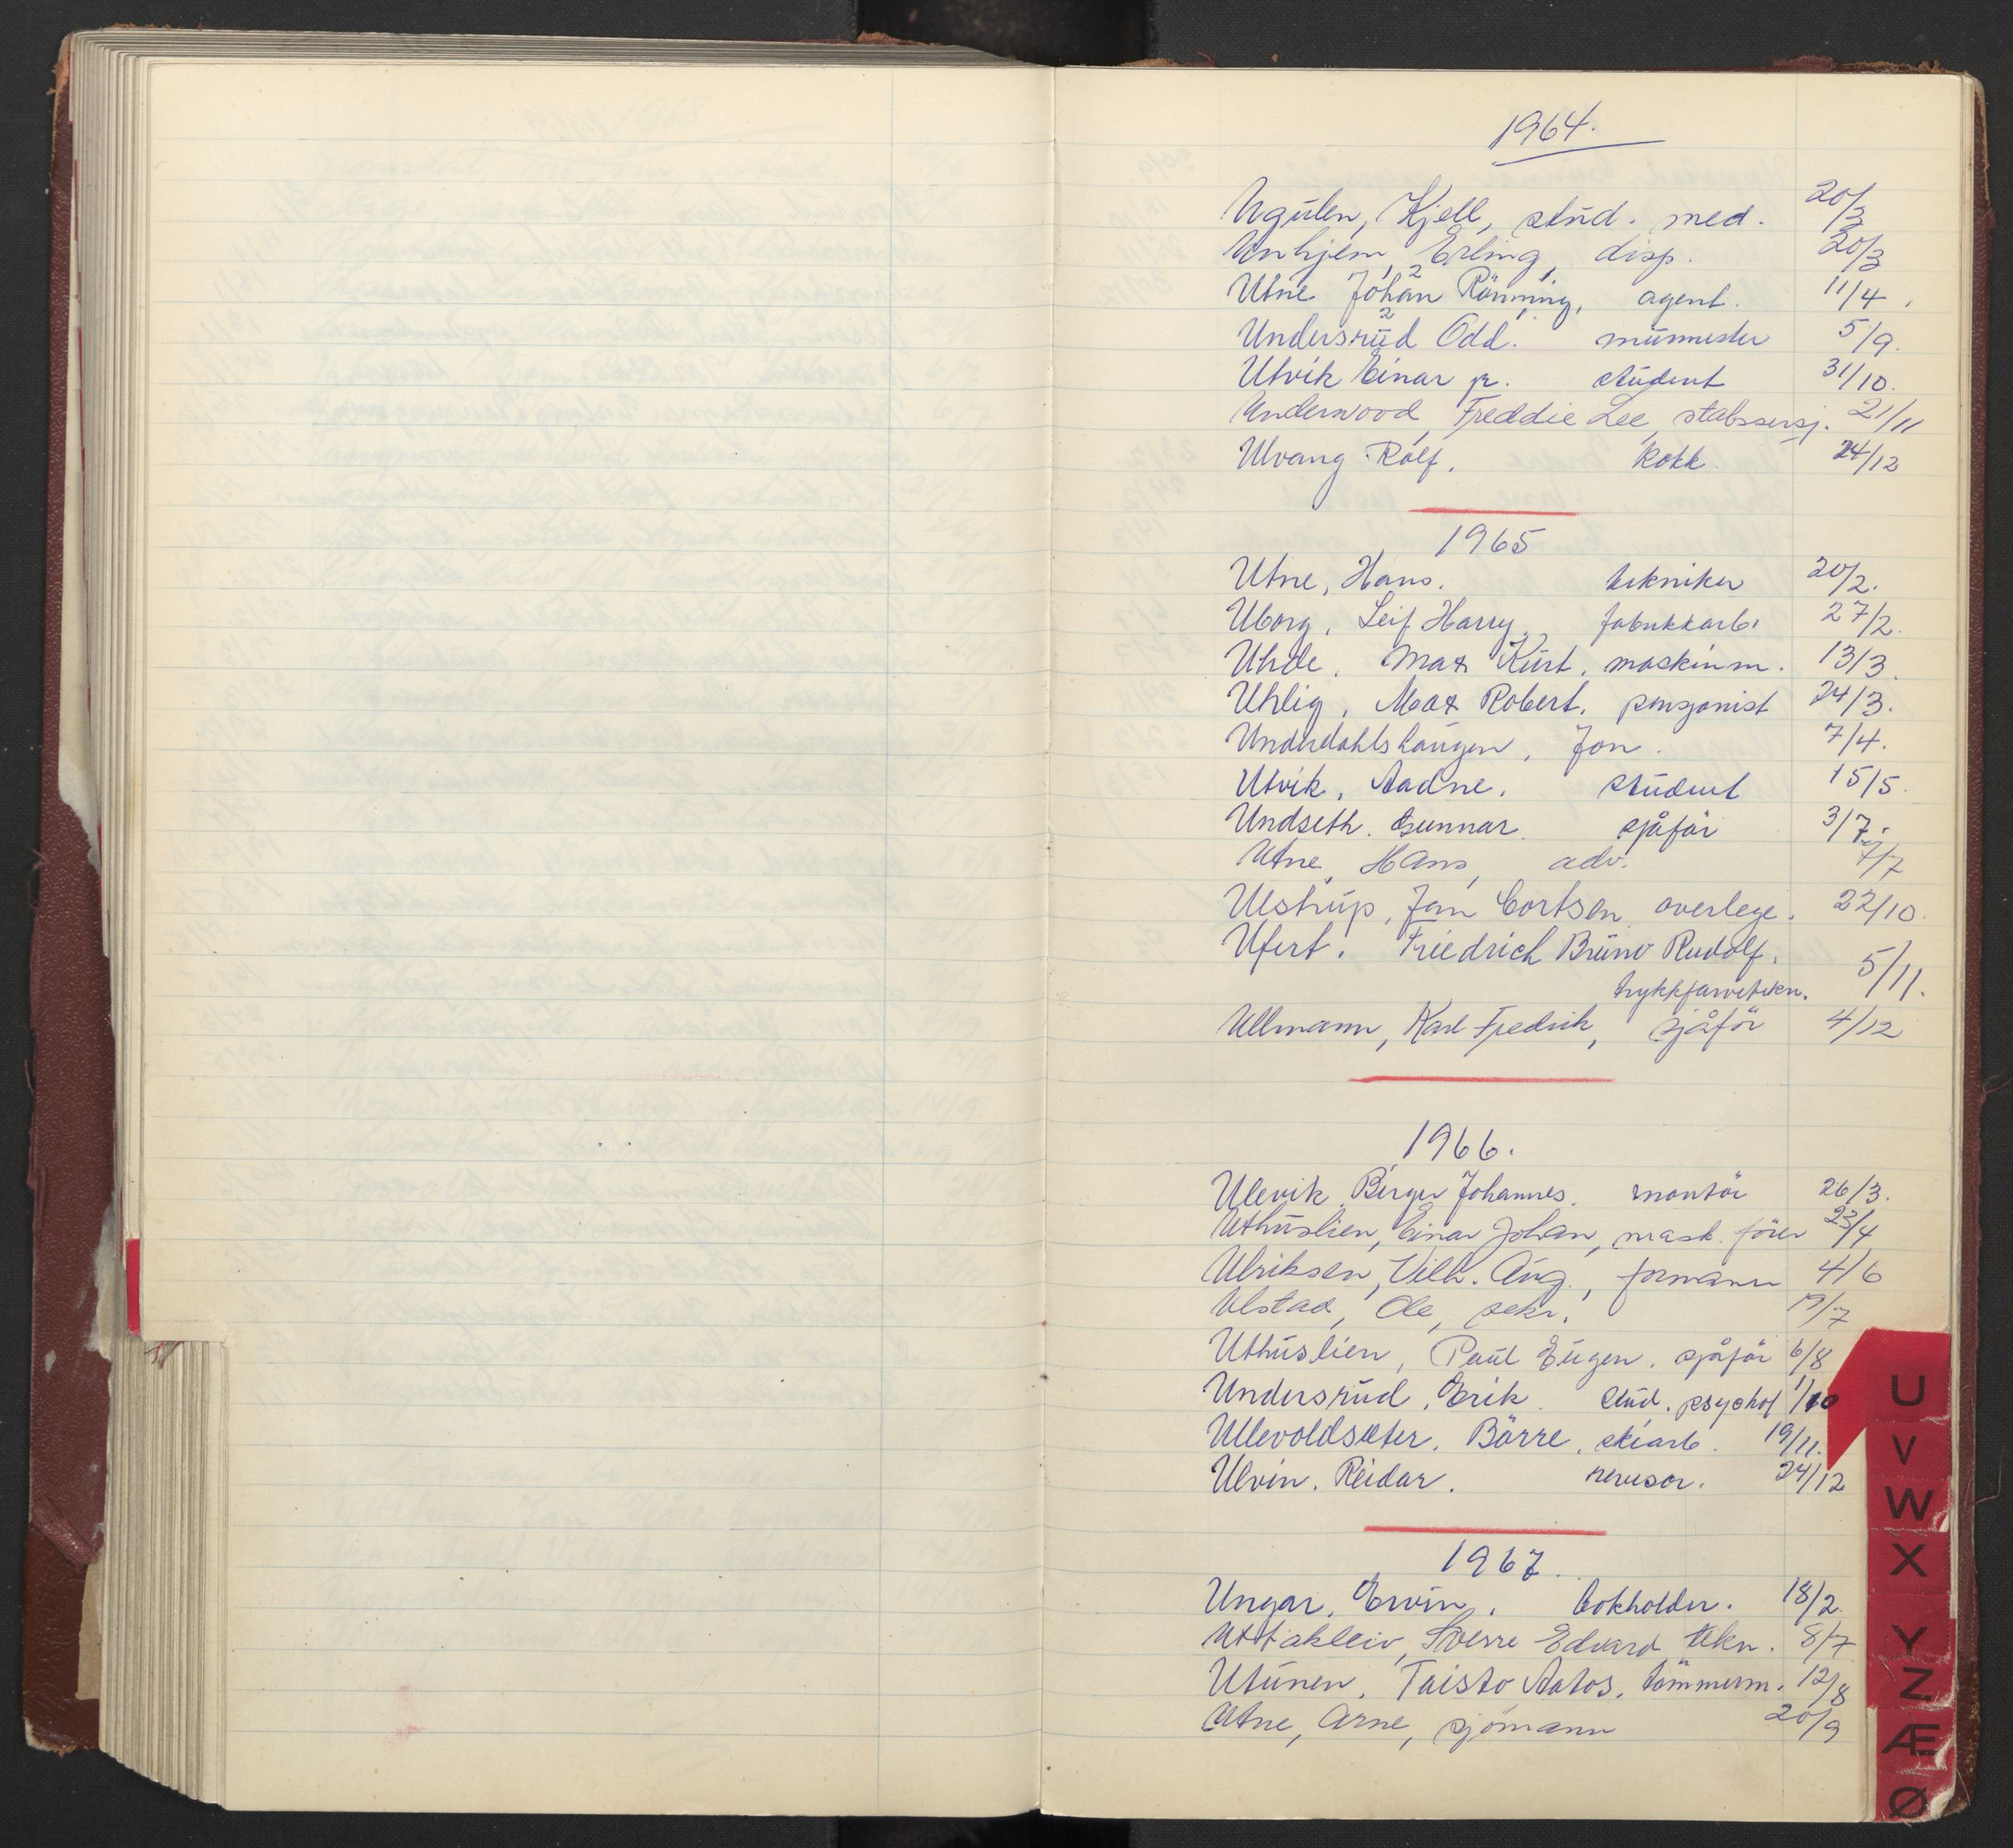 1964.
Ugulen, Kjell, stud. med. 20/3
Unhjem, Erling, disp. 20/3
Utne Johan Rönning, agent. 11/4
Undersrud Odd. murmester 5/9.
Utvik Einar jr. student 31/10.
Underwood, Freddie Lee, stabssersj. 21/11
Ulvang Rolf. kokk. 24/12
1965
Utne, Hans. tekniker 20/2.
Uborg, Leif Harry, fabrikkarb. 27/2.
Uhde, Max Kurt, maskinm. 13/3.
Uhlig, Max Robert, pensjonist 24/3.
Underdahlshaugen, Jon. 7/4.
Utvik, Aadne. student 15/5.
Undseth, Gunnar. sjåför 3/7.
Utne, Hans, adv. 7/7
Ulstrup, Jan Cortsen overlege. 22/10.
Ufert. Friedrich Bruno Rudolf.
trykkfarvetekn. 5/11.
Ullmann, Karl Fredrik, sjåför 4/12
1966.
Ulevik, Birger Johannes. montör 26/3.
Uthuslien, Einar Johan, mask. förer 23/4
Ulriksen, Vilh. Aug., formann 4/6
Ulstad, Ole, sekr. /7
Uthuslien, Paul Eugen, sjåför 6/8
Undersrud, Erik. stud. psychol 1/10
Ullevoldsæter, Börre, skiarb. 19/11.
Ulvin, Reidar. revisor. 24/12
1967.
Ungar, Ervin, bokholder. 18/2.
Uttakleiv, Sverre Edvard tekn. 8/7
Utunen, Taisto Aatos, tömmerm. 12/8
Utne, Arne, sjömann 20/9
U
V
W
X
Y
Z
Æ
Ø